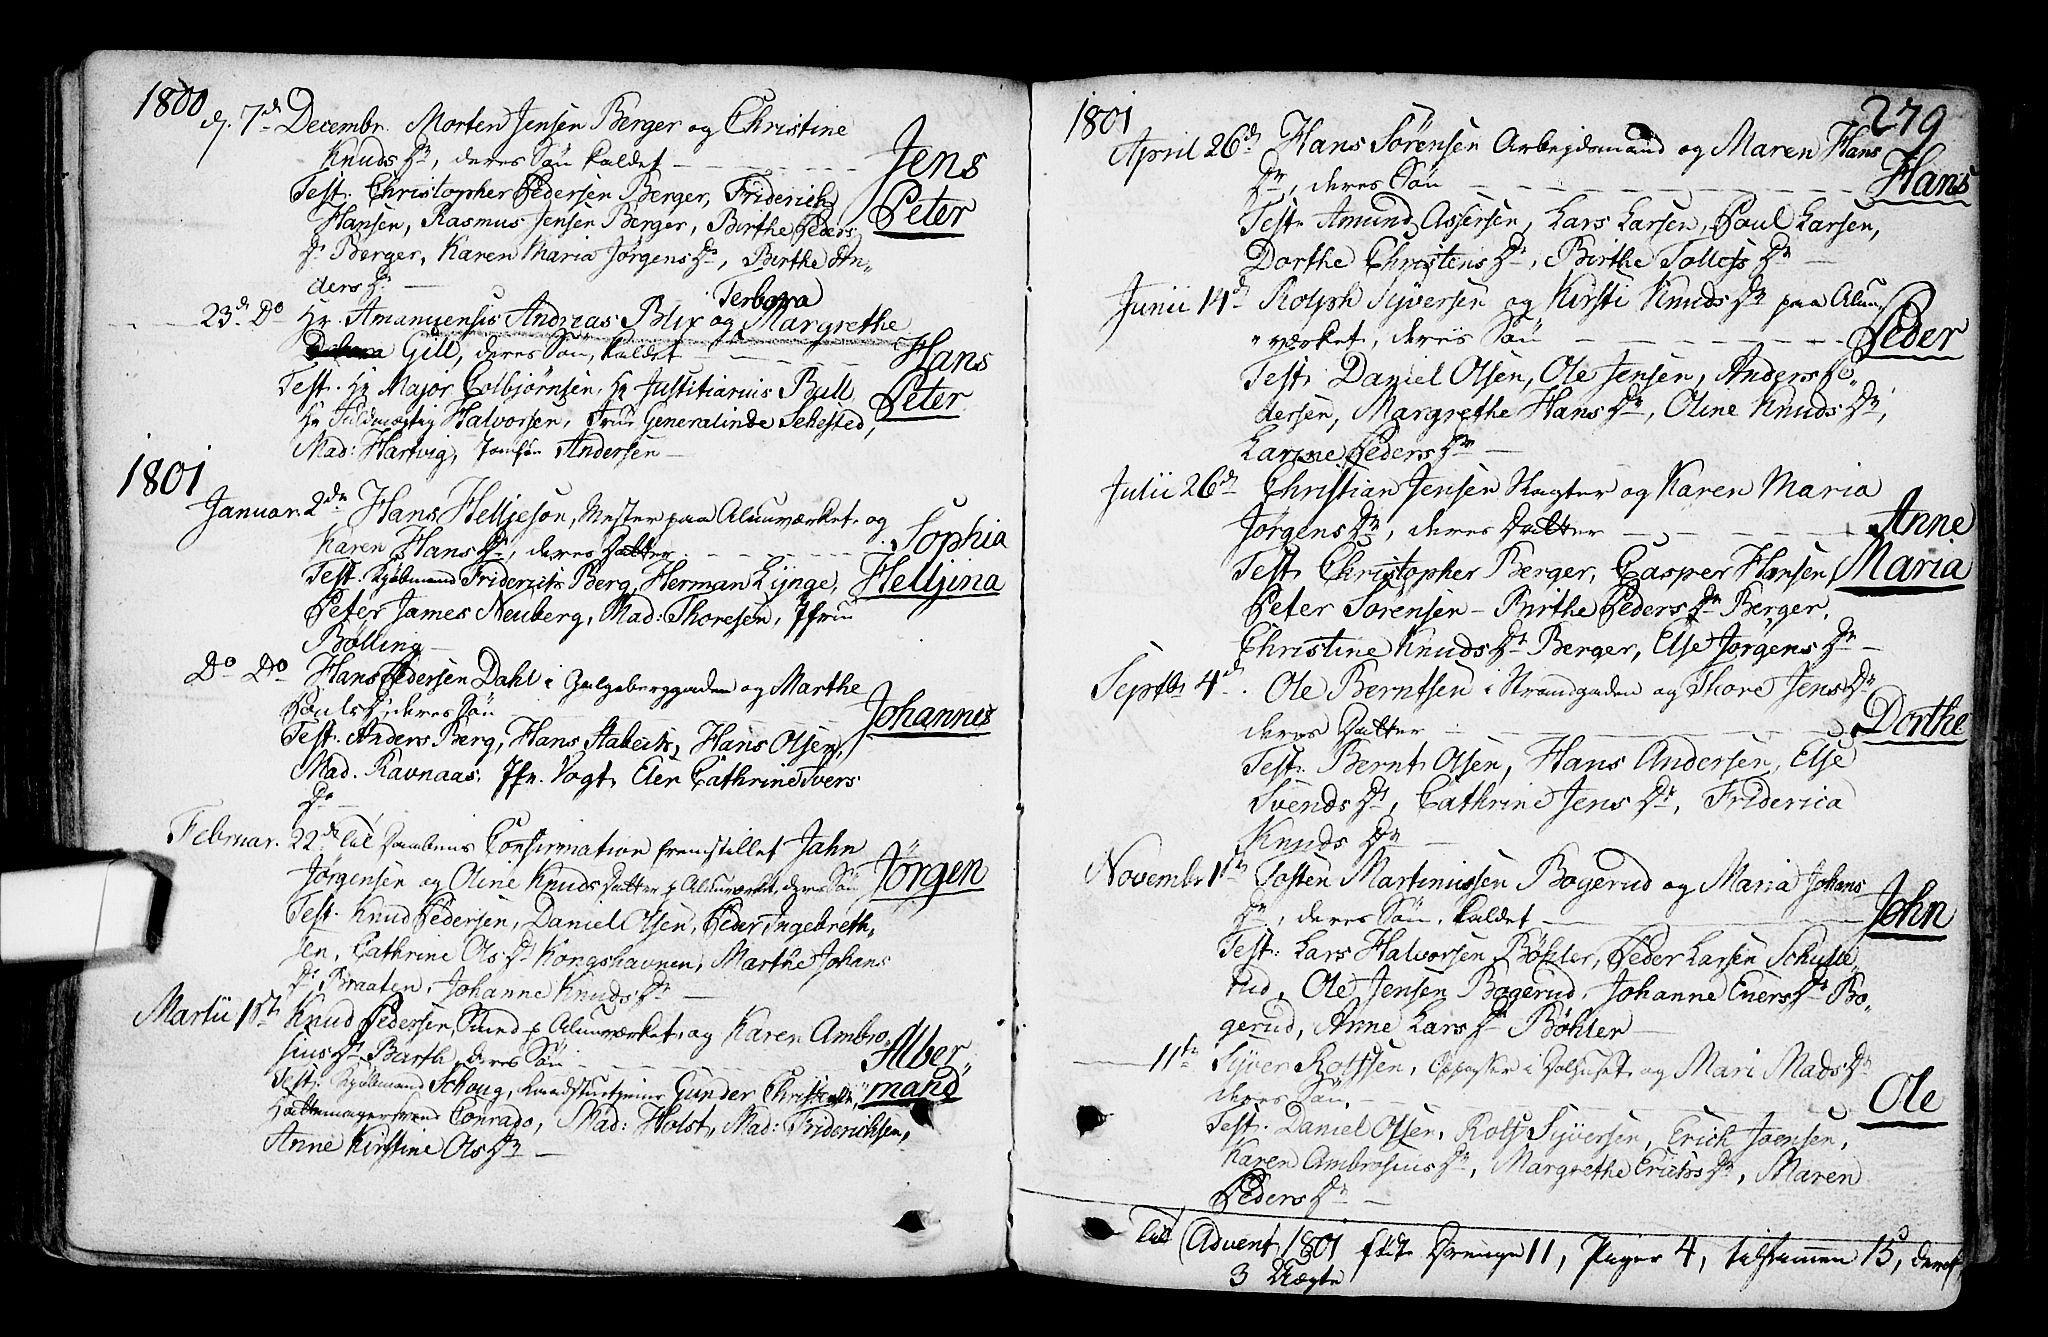 1800
d. 7de Decembr. Morten Jensen Berger og Christine
Knuds Dr, deres Søn kaldet — Jens
Test. Christopher Pedersen Berger, Friderich
Hansen, Rasmus Jensen Berger, Birthe Peders Peter
Dr Berger, Karen Maria Jørgens Dr, Birthe An„
ders Dr —
Terbora
23de Do Hr. Amanuensis Andreas Blix og Margrethe
Gill, deres Søn, kaldet — Hans
Test. Hr Major Colbjørnsen, Hr Justitiarius Bull, Peter
Hr Halvorsen, Frue Generalinde Sehested,
Mad: Hartvig, Jomfru Andersen —
1801
Januar. 2den Hans Helljesøn, Mester paa Aluuværket, og Sophia
Karen Hans Dr, deres Datter
Test. Kjøbmand Friderich Berg, Herman Lynge, Helljina
Peter James Neuberg, Mad: Thoresen, Jfru
Bölling —
Do Do Hans Pedersen Dahl i Galgeberggaden og Marthe
Pouls Dr, deres Søn Johannes
Test. Anders Berg, Hans Olsen,
Mad. Ravnaas, Jfr. Vogt, Cathrine Ivers
Dr —
Februar. 22de til Daabens Confirmation fremstillet Jahn
Jørgensen og Oline Knuds Datter p. Aluuværket, deres Søn Jørgen
Test. Knud Pedersen, Daniel Olsen, Peder Ingebreth„
sen, Cathrine Ols Dr Kongshavnen, Marthe Johans
Dr Braaten, Johanne Knuds Dr —
Martii 1ste Knud Pedersen, Smed p. Aluuværket, og Karen Ambro„
sius Dr Barth, deres Søn — Alber„
Test: Kjøbmand Schoug, Gunder
mand
Conrado, Mad: Holst, Mad: Friderichsen,
Anne Kirstine Ols Dr —
1801
279
April 26de Hans Sørensen Arbejdsmand og Maren Hans
Dr, deres Søn — Hans
Test. Amund Assersen, Lars Larsen, Poul Larsen,
Dorthe Christens Dr, Birthe Dr —
Junii 14de Rolph Syversen og Kirsti Knuds Dr paa Aluu„
„værket, deres Søn — Peder
Test. Daniel Olsen, Ole Jensen, Anders Pe„
dersen, Margrethe Hans Dr, Oline Knuds Dr,
Karine Peders Dr —
Julii 26de Christian Jensen Slagter og Karen Maria
Jørgens Dr, deres Datter — Anne
Test. Christopher Berger, Casper Hansen, Maria
Peter Sørensen — Birthe Peders Dr Berger,
Christine Knuds Dr Berger, Else Jørgens Dr —
Septbr 4de. Ole Berntsen i Strandgaden og Thore Jens Dr
deres Datter — Dorthe
Test. Bernt Olsen, Hans Andersen, Else
Svends Dr, Cathrine Jens Dr, Friderica
Knuds Dr —
Novembr 1ste Tosten Martinussen Bogerud og Maria Johans
Dr, deres Søn, kaldet — John
Test: Lars Halvorsen Böhler, Peder Larsen Schulle„
rud, Ole Jensen Bogerud, Johanne Eners Dr Bo„
gerud, Anne Lars Dr Böhler —
— 11te Syver Rolfsen, Oppasser i Dolhuset, og Mari Mads Dr
deres Søn, — Ole
Test. Daniel Olsen, Rolf Syversen, Erich Joensen,
Karen Ambrosius Dr, Margrethe Erichs Dr, Maren
Peders Dr —
Til Advent 1801 født Drenge 11, Piger 4, tilsammen 15, deraf
3 Uægte